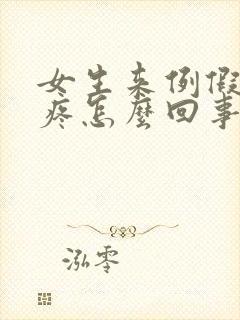 女生来例假
疼怎麼回事
泓零